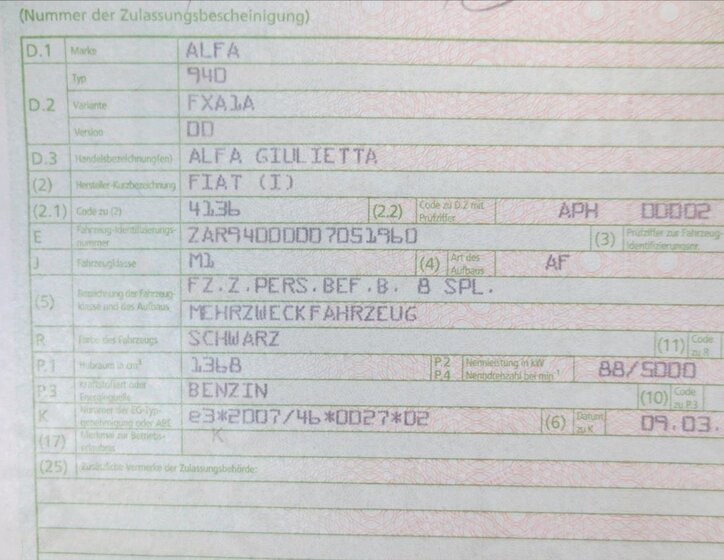 (Nummer der Zulassungsbescheinigung)
D.1 Marke ALFA
Typ 940
D.2 Variante FXA1A
Version 00
D.3 Handelsbezeichnung(en) ALFA GIULIETTA
(2) Hersteller-Kurzbezeichnung FIAT (I)
(2.1) Code zu (2) 4136 (2.2) Code zu D.2 mit Prüfziffer APH 00002
E Fahrzeug-Identifizierungs-nummer ZAR94000007051960 (3) Prüfziffer zur Fahrzeug-Identifizierungsnr.
J Fahrzeugklasse M1 (4) Art des Aufbaus AF
(5) Bezeichnung der Fahrzeug-klasse und des Aufbaus FZ.Z.PERS.BEF.B. 8 SPL.
MEHRZWECKFAHRZEUG
R Farbe des Fahrzeugs SCHWARZ (11) Code zu R
P.1 Hubraum in cm³ 1368 P.2 P.4 Nennleistung in kW Nenndrehzahl bei min⁻¹ 88/5000
P.3 Kraftstoffart oder Energiequelle BENZIN (10) Code zu P.3
K Nummer der EG-Typ-genehmigung oder ABE e3*2007/46*0027*02 (6) Datum zu K 09.03.
(17) Merkmal zur Betriebs-erlaubnis K
(25) Zusätzliche Vermerke der Zulassungsbehörde: